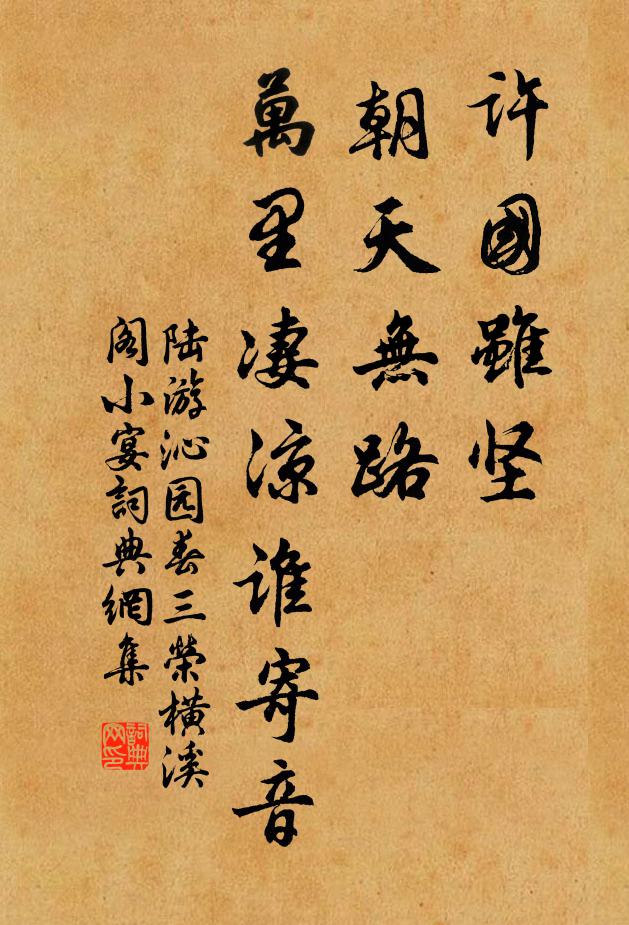 许國雖坚
朝天無路
萬里凄凉谁寄音
陆游沁园春三榮横溪
阁小宴詞典網集
詞典
网印